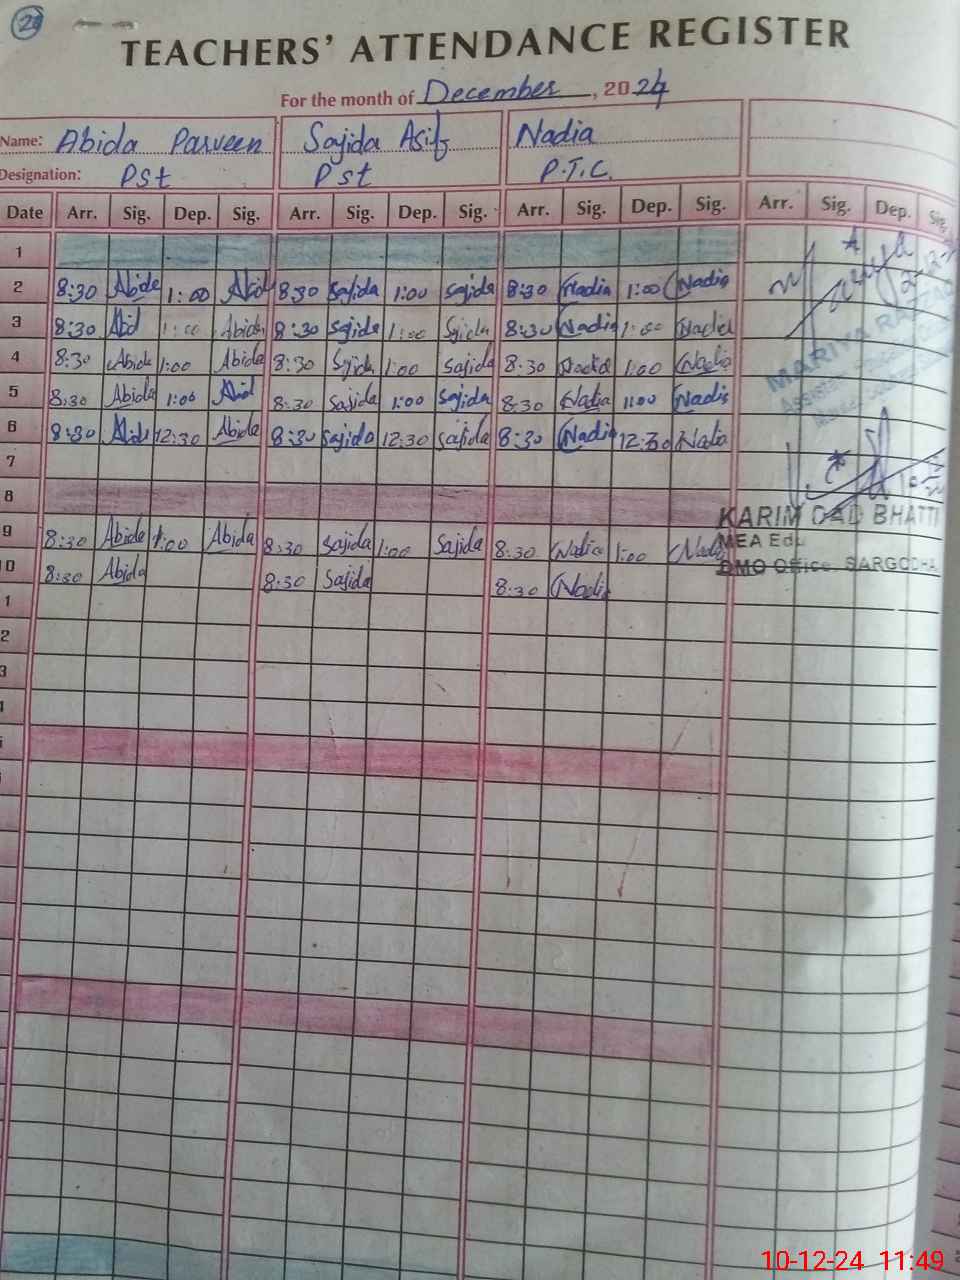 20
TEACHERS' ATTENDANCE REGISTER
For the month of December, 2024
Name: Abida Parveen Sajida Asif Nadia
Designation: Pst Pst P.T.C.
Date Arr. Sig. Dep. Sig. Arr. Sig. Dep. Sig. Arr. Sig. Dep. Sig. Arr. Sig. Dep. Sig.
1
2 8:30 Abida 1:00 Abid 8:30 Sajida 1:00 Sajida 8:30 Nadia 1:00 Nadia
3 8:30 Abid 1:00 Abida 8:30 Sajida 1:00 Sjida 8:30 Nadia 1:00 Nadia
4 8:30 Abida 1:00 Abida 8:30 Sajida 1:00 Sajida 8:30 Nadia 1:00 Nadia
5 8:30 Abida 1:00 Abid 8:30 Sajida 1:00 Sajida 8:30 Nadia 1:00 Nadia
6 8:30 Abida 12:30 Abida 8:30 Sajida 12:30 Sajida 8:30 Nadia 12:30 Nadia
7
8
9 8:30 Abida 1:00 Abida 8:30 Sajida 1:00 Sajida 8:30 Nadia 1:00 Nadia
0 8:30 Abida 8:30 Sajida 8:30 Nadia
1
2
3
MARIYA
KARIM DAD BHATTI
MEA Edu
DMO Office SARGODHA
10-12-24 11:49